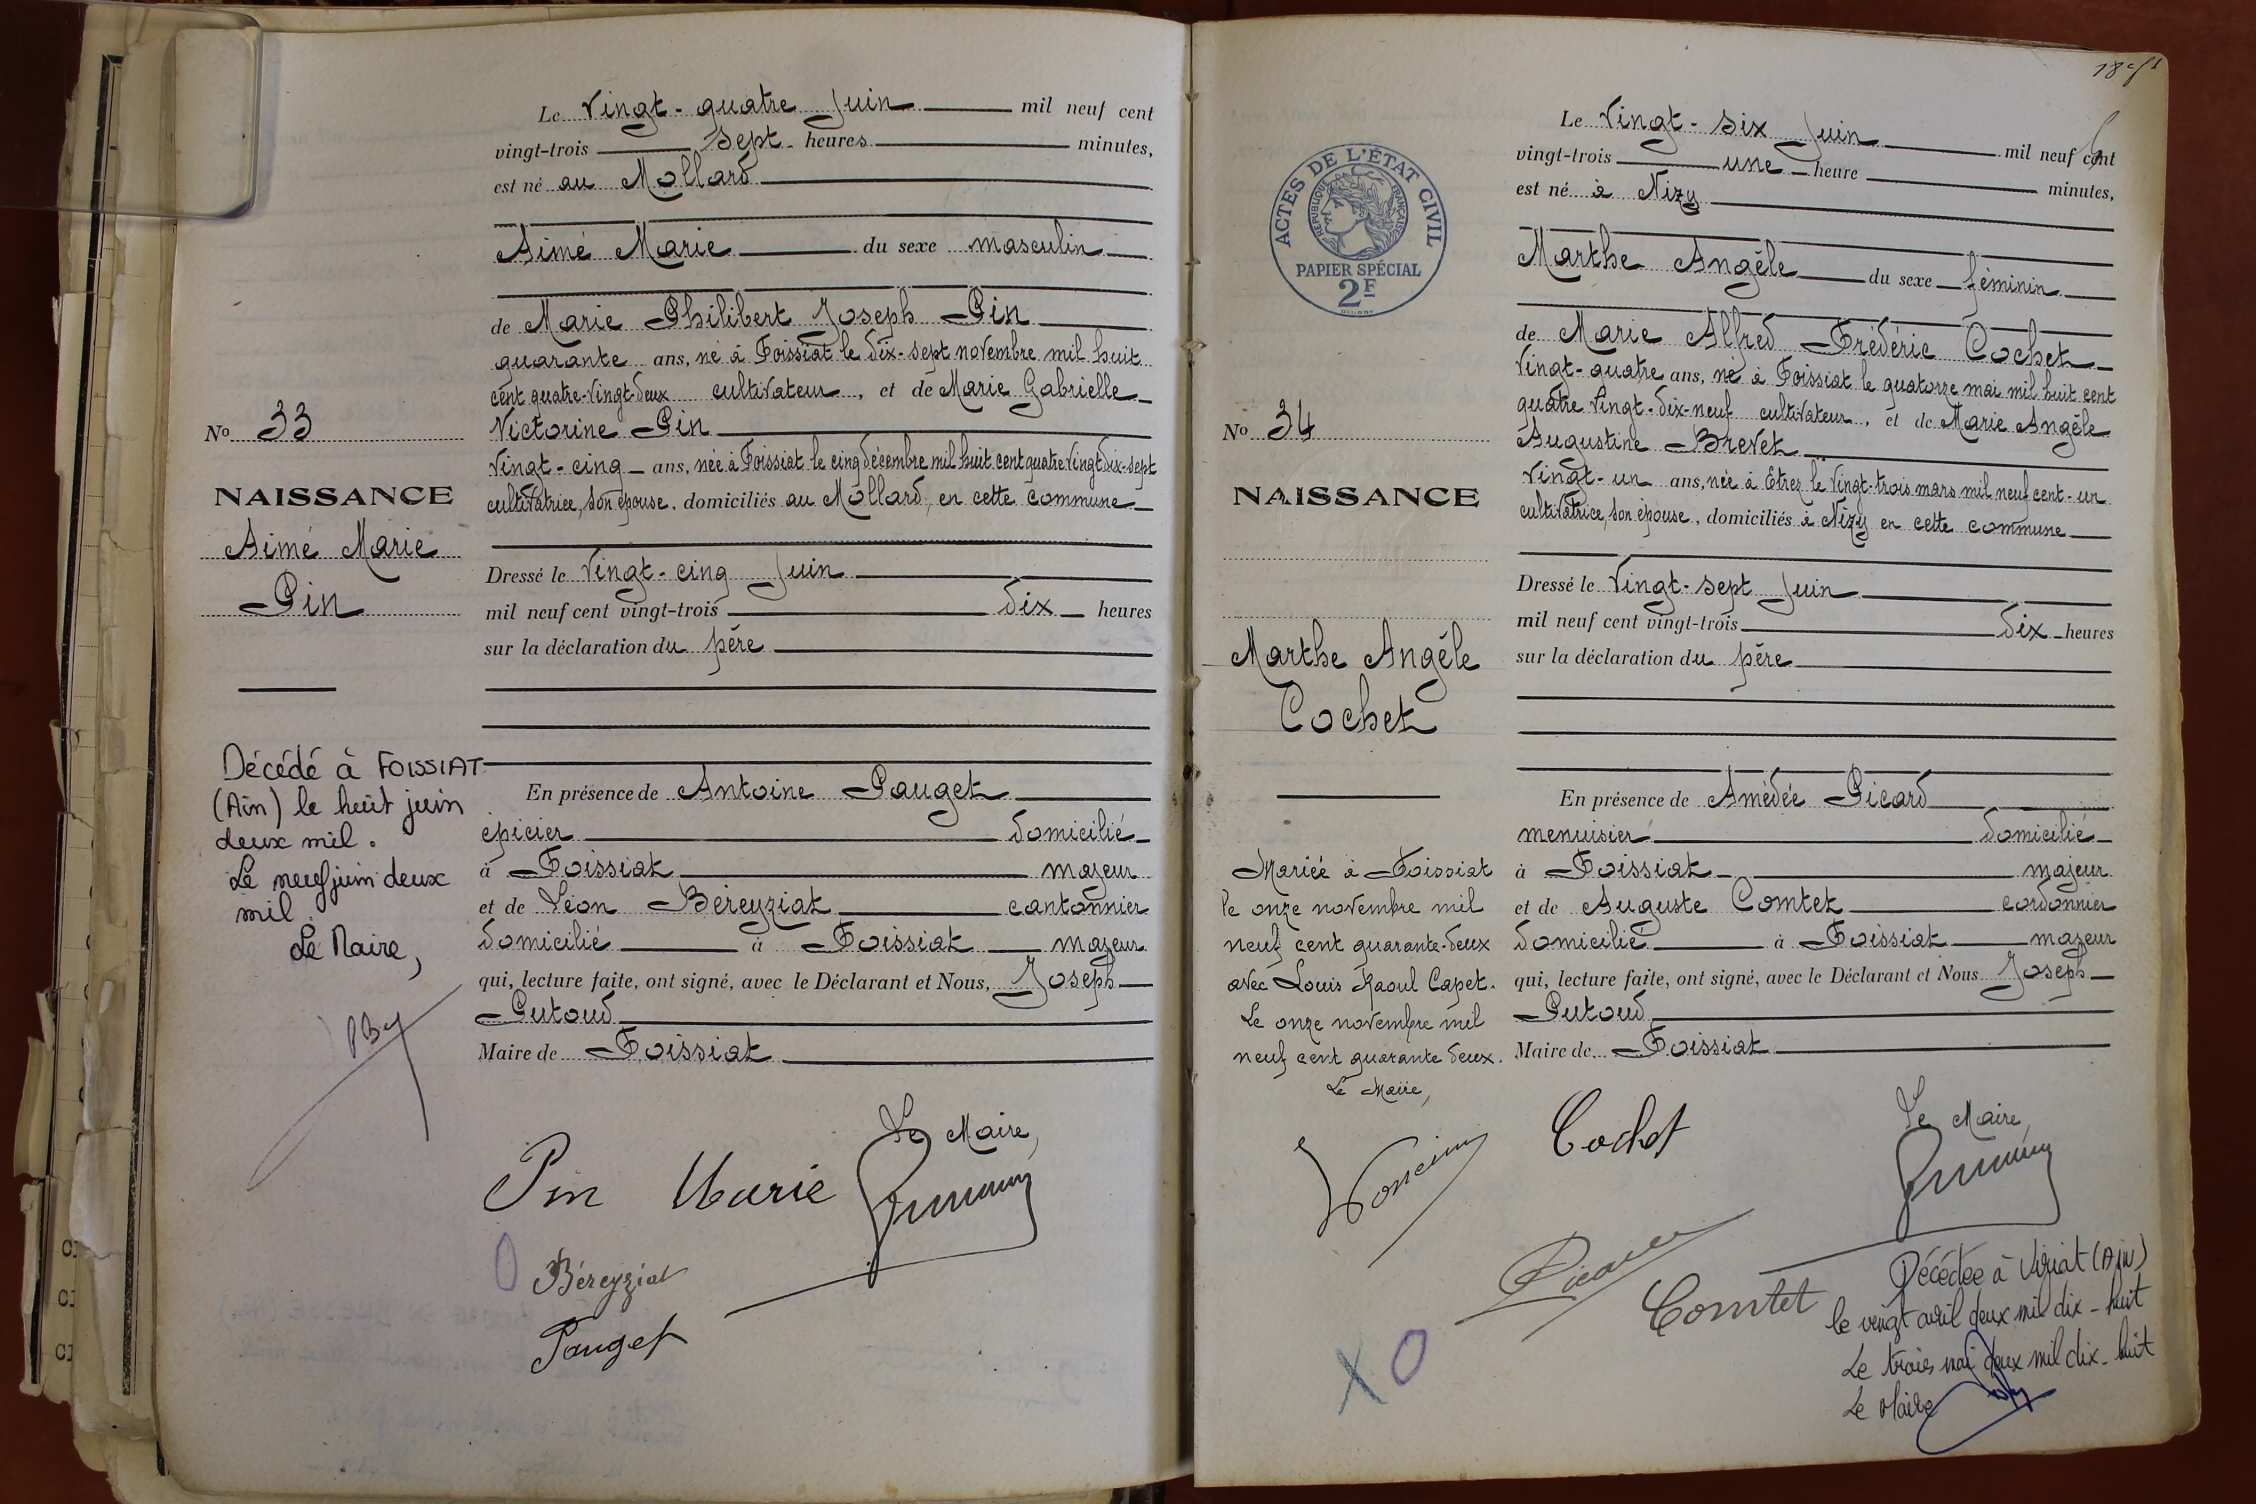 Le Vingt-quatre Juin mil neuf cent
vingt-trois sept heures minutes,
est né au Mollard
Aimé Marie du sexe masculin
de Marie Philibert Joseph Pin
quarante ans, né à Foissiat le dix-sept novembre mil huit
cent quatre-vingt-deux cultivateur, et de Marie Gabrielle
Victorine Pin
Vingt-cinq ans, née à Foissiat le cinq décembre mil huit cent quatre vingt dix-sept
cultivatrice, son épouse, domiciliés au Mollard, en cette commune
Dressé le Vingt-cinq Juin
mil neuf cent vingt-trois dix heures
sur la déclaration du père
En présence de Antoine Pauget
épicier domicilié
à Foissiat majeur
et de Léon Béreyziat cantonnier
domicilié à Foissiat majeur
qui, lecture faite, ont signé, avec le Déclarant et Nous, Joseph
Putoud
Maire de Foissiat
Le Maire,
Pin Marie
Béreyziat
Pauget
No 33
NAISSANCE
Aimé Marie
Pin
Décédé à FOISSIAT
(Ain) le huit juin
deux mil.
Le neuf juin deux
mil.
Le Maire,
18
Le Vingt-six Juin mil neuf cent
vingt-trois une heure minutes,
est né à Nizy
Marthe Angèle du sexe féminin
de Marie Alfred Frédéric Cochet
Vingt-quatre ans, né à Foissiat le quatorze mai mil huit cent
quatre vingt-dix-neuf cultivateur, et de Marie Angèle
Augustine Brevet
Vingt-un ans, née à Etrez le Vingt-trois mars mil neuf cent-un
cultivatrice, son épouse, domiciliés à Nizy en cette commune
Dressé le Vingt-sept Juin
mil neuf cent vingt-trois dix heures
sur la déclaration du père
En présence de Amédée Picard
menuisier domicilié
à Foissiat majeur
et de Auguste Comtet cordonnier
domicilié à Foissiat majeur
qui, lecture faite, ont signé, avec le Déclarant et Nous Joseph
Putoud
Maire de Foissiat
Le Maire,
Cochet
Picard
Comtet
ACTES DE L'ÉTAT CIVIL
RÉPUBLIQUE FRANÇAISE
PAPIER SPÉCIAL
2F
No 34
NAISSANCE
Marthe Angèle
Cochet
Mariée à Foissiat
le onze novembre mil
neuf cent quarante-deux
avec Louis Raoul Capet.
Le onze novembre mil
neuf cent quarante deux.
Le Maire,
Décédée à Viriat (Ain)
le vingt avril deux mil dix-huit
Le trois mai deux mil dix-huit
Le Maire